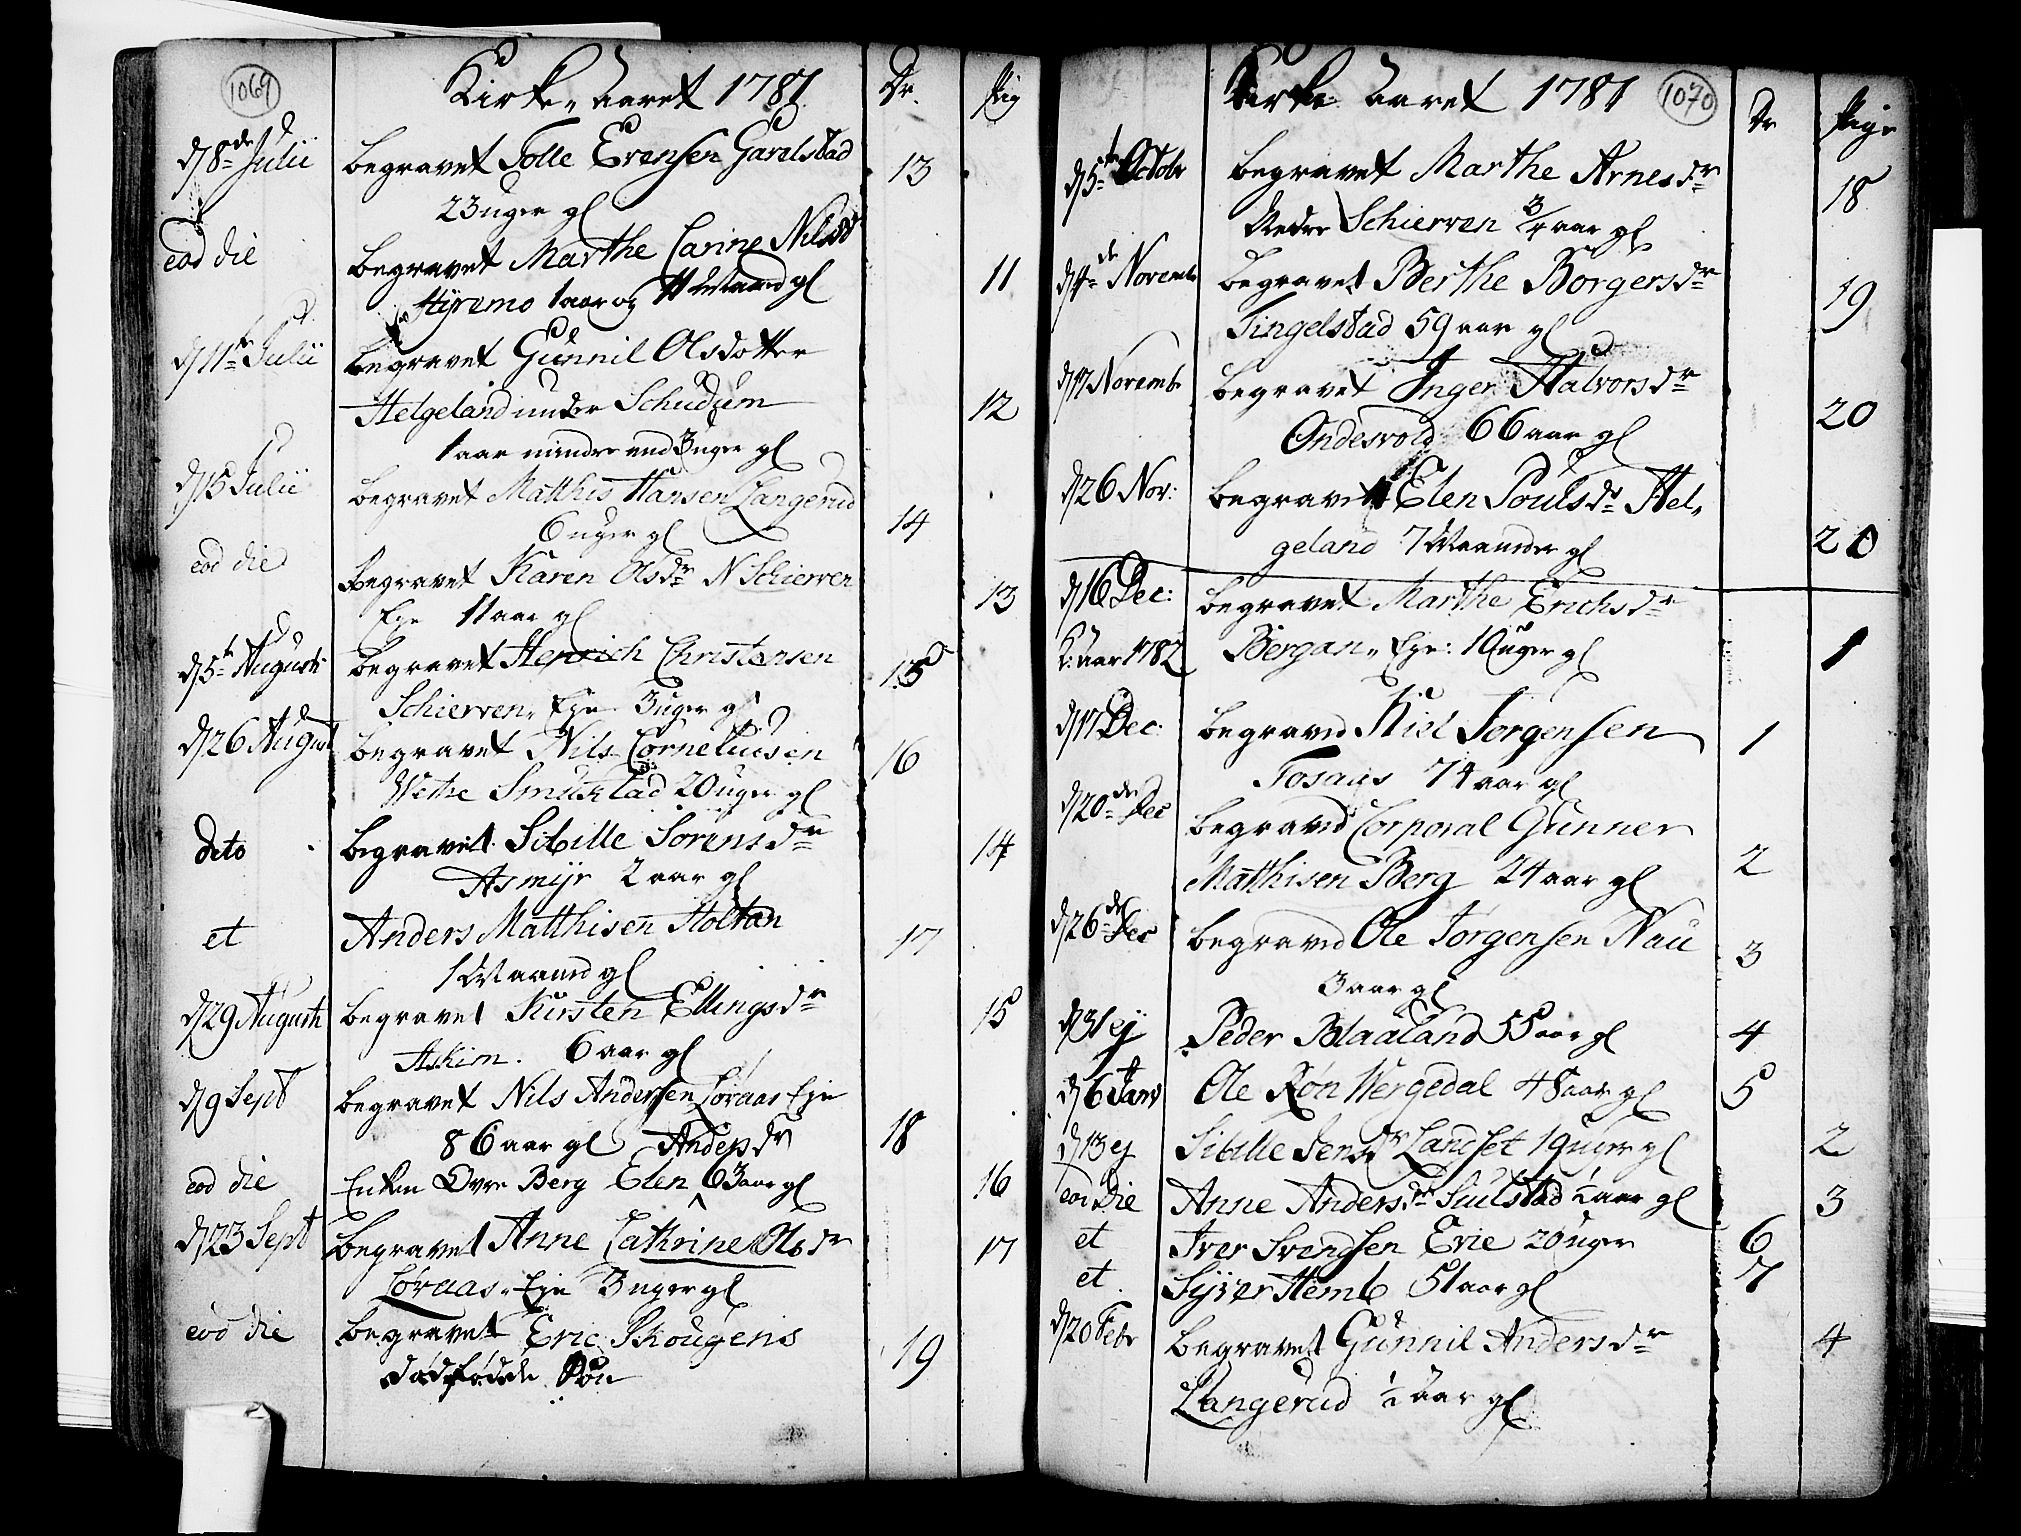 1069
Kirke-Aaret 1781
Dr.
Pig
d/8de Julii
begravet Tolle Evensen Garelstad
13
23 uger gl
eod die
begravet Marthe Carine Nilsdr
Hyremo 1 aar og 11 Maand gl
11
d/11te Julii
begravet Gunnil Olsdotter
Helgeland under Schudum
12
1 aar mindre end 3 uger gl
d/15 Julii
begravet Matthis Hansen Langerud
6 uger gl
14
eod die
Begravet Karen Olsdr N Schierven
13
Eje 11 aar gl
d/5te Augusti
begravet Henrich Christensen
15
Schierven-Eje 3 uger gl
d/26 August
begravet Nils Corneliusen
16
Smukstad 20 uger gl
deto
begravet Sibille Sørensdr
14
Asmyr 2 aar gl
et
Anders Matthisen Holtan
17
1 Maaned gl
d/29 Augusti
begravet Kirsten Ellingsdr
15
Askim. 6 aar gl
d/9 Sept
begravet Nils Andersen Løraas Eje
86 aar gl
18
Andersdr
eod die
Enken Øvre Berg Elen 63 aar gl
16
d/23 Sept
begravet Anne Cathrine Olsdr
17
Løraas-Eje 3 uger gl
eod die
begravet Eric Skougens
19
dødfødde Søn
1070
Kirke Aaret 1781
Dr
Pige
d/5te Octobr
begravet Marthe Arnesdr
18
Nedre Schierven 3/4 aar gl
d/4de Novemb
begravet Berthe Børgersdr
19
Tingelstad 59 aar gl
d/17 Novemb
begravet Inger Halvorsdr
20
Ondesvold 66 aar gl
d/26 Nov:
begravet Elen Poulsdr Hel-
geland 7 Maaneder gl
20
d/16 Dec:
begravet Marthe Erichsdr
K: Aar 1782
Bergan-Eje: 10 uger gl
1
d/17 Dec:
begraved Niel Jørgensen
1
Fosaas 74 aar gl
d/20de Dec
begraved Corporal Gunner
2
Matthisen Berg 24 aar gl
d/26de Dec
begraved Ole Jørgensen Nau
3
3 aar gl
d/31 ej
Peder Blaaland 55 aar gl
4
d/6 Janv
Ole Røn Wergedal 48 aar gl
5
d/13 ej
Sibille Jensdr Landset 19 uger gl
2
eod Die
Anne Andersdr Siulstad 1/2 aar gl
3
et
Iver Svendsen Evie 20 uger
6
et
Syver Hemb 51 aar gl
7
d/20 Febr
begravet Gunnil Andersdr
4
Langerud 1/2 aar gl